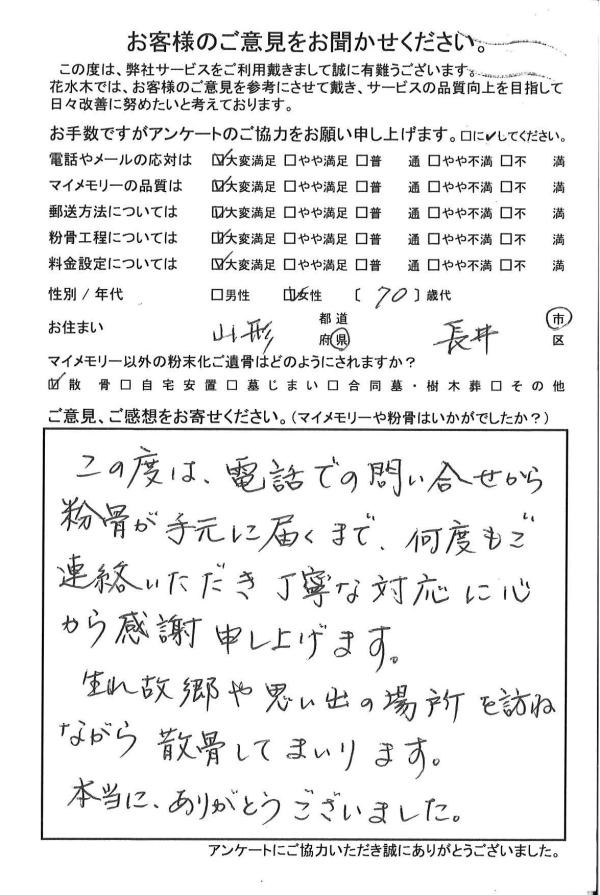 お客様のご意見をお聞かせください。
この度は、弊社サービスをご利用戴きまして誠に有難うございます。
花水木では、お客様のご意見を参考にさせて戴き、サービスの品質向上を目指して
日々改善に努めたいと考えております。
お手数ですがアンケートのご協力をお願い申し上げます。□に✔してください。
電話やメールの応対は ☑大変満足 □やや満足 □普 通 □やや不満 □不 満
マイメモリーの品質は ☑大変満足 □やや満足 □普 通 □やや不満 □不 満
郵送方法については ☑大変満足 □やや満足 □普 通 □やや不満 □不 満
粉骨工程については ☑大変満足 □やや満足 □普 通 □やや不満 □不 満
料金設定については ☑大変満足 □やや満足 □普 通 □やや不満 □不 満
性別 / 年代 □男性 ☑女性 〔 70 〕歳代
お住まい 山形 都道府県 長井 市区
マイメモリー以外の粉末化ご遺骨はどのようにされますか?
☑散 骨 □自宅安置 □墓じまい □合同墓・樹木葬 □その他
ご意見、ご感想をお寄せください。(マイメモリーや粉骨はいかがでしたか?)
この度は、電話での問い合せから
粉骨が手元に届くまで、何度もご
連絡いただき丁寧な対応に心
から感謝申し上げます。
生れ故郷や思い出の場所を訪ね
ながら散骨してまいります。
本当に、ありがとうございました。
アンケートにご協力いただき誠にありがとうございました。